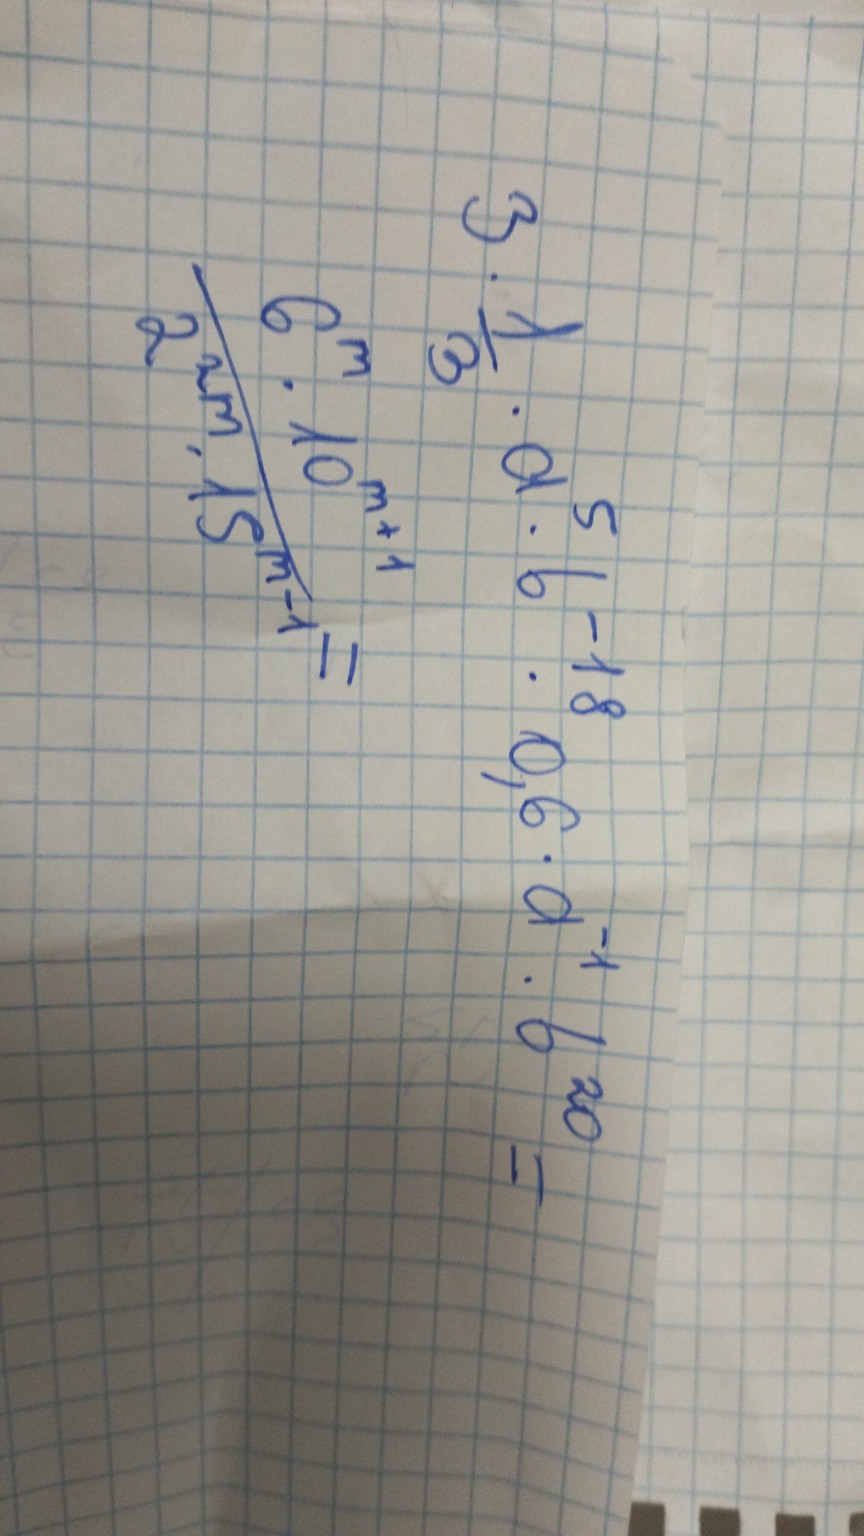 3 · 1/3 · a⁵ · b⁻¹⁸ · 0,6 · a⁻¹ · b²⁰ =
6ᵐ · 10ᵐ⁺¹
2²ᵐ · 15ᵐ⁻¹ =